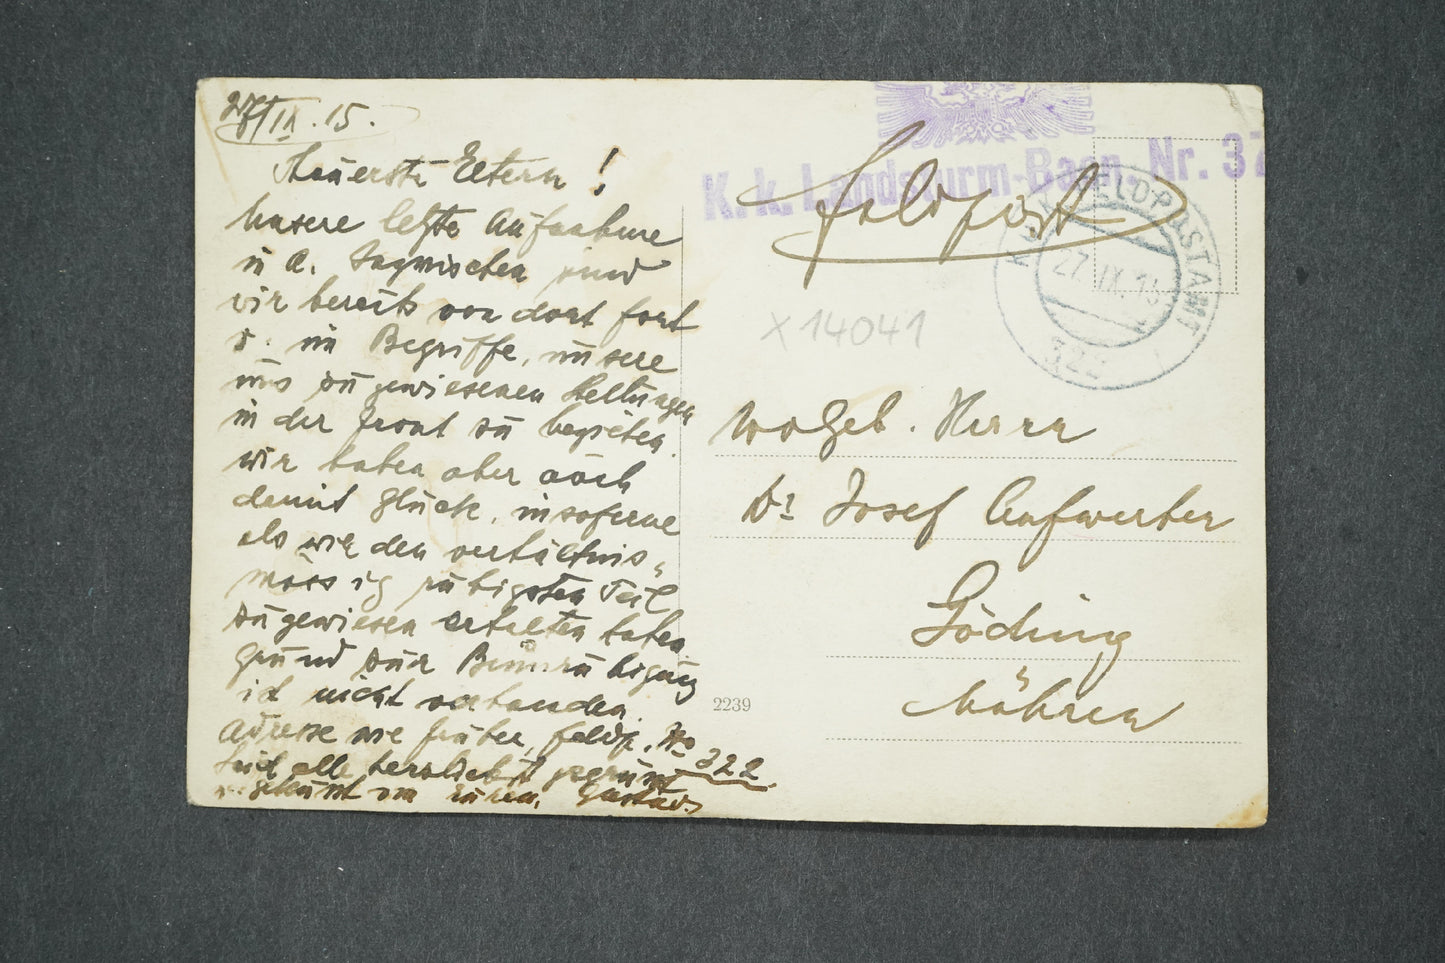 27/IX.15.
Teuerste Eltern!
Unsere letzte Aufnahme
in A. Inzwischen sind
wir bereits von dort fort
u. im Begriffe, unsere
uns zugewiesenen Stellungen
in der Front zu beziehen.
wir haben aber auch
damit Glück, insoferne
als wir den verhältnis-
mässig ruhigsten Teil
zugewiesen erhalten haben
Grund zur Beunruhigung
ist nicht vorhanden.
Adresse wie früher, Feldp. No 322
Seid alle herzlichst gegrüsst
u. geküsst von eurem Gustav.
K.k. Landsturm-Baon. Nr. 37
Feldpost
K.u.K. FELDPOSTAMT
27.IX.15
322
X 14041
Wolgeb. Herrn
Dr Josef Aufwerber
Göding
Mähren
2239